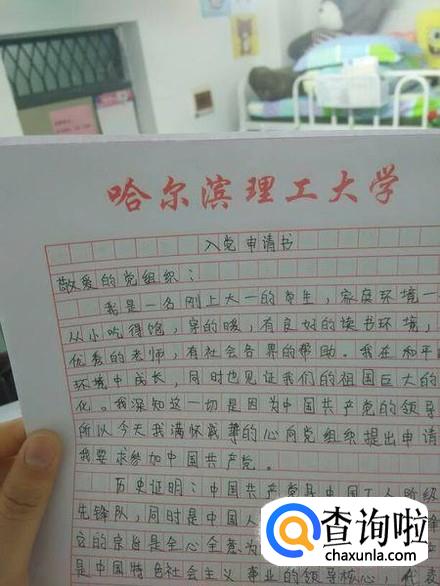 哈尔滨理工大学
入党申请书
敬爱的党组织：
我是一名刚上大一的学生，家庭环境一
从小吃得饱，穿的暖，有良好的读书环境，
优秀的老师，有社会各界的帮助。我在和平
环境中成长，同时也见证我们的祖国巨大的
化。我深知这一切是因为中国共产党的领导
所以今天我满怀诚挚的心向党组织提出申请
我要求参加中国共产党。
历史证明：中国共产党是中国工人阶级
先锋队，同时是中国人
党的宗旨是全心全意为
是中国特色社会主义事业的领导核心，代表
查询啦
chaxunla.com